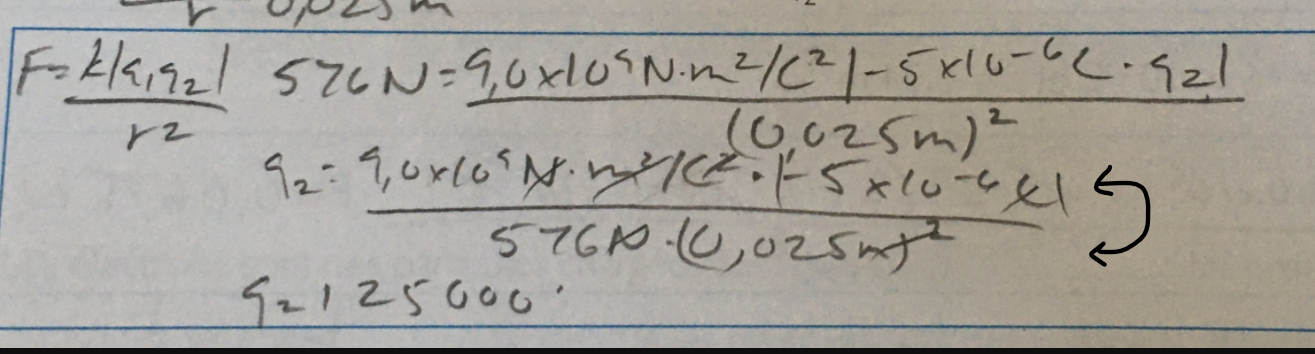 r 0,025m
F=k|q1q2| / r2 576N=9,0x10⁹N·m²/C²|-5x10⁻⁶C·q2| / (0,025m)²
q2=9,0x10⁹N·m²/C²·|-5x10⁻⁶C| / 576N·(0,025m)²
q2 125000